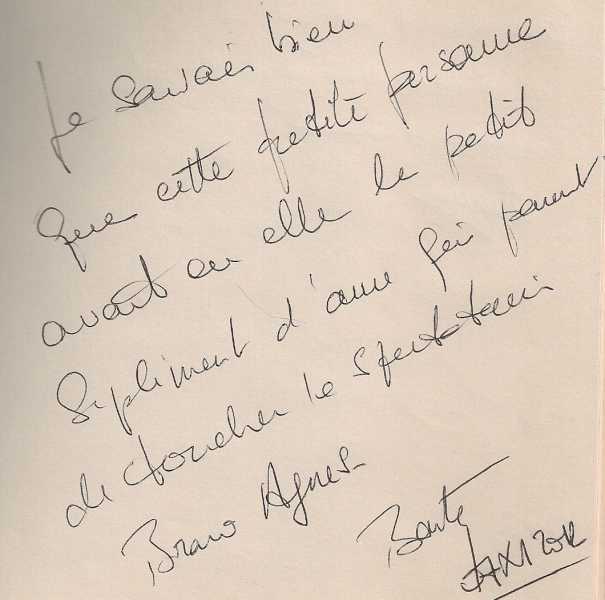 Je savais bien
que cette petite personne
avait en elle le petit
supliment d'ame qui permet
de toucher le spectateur
Bravo Agnes